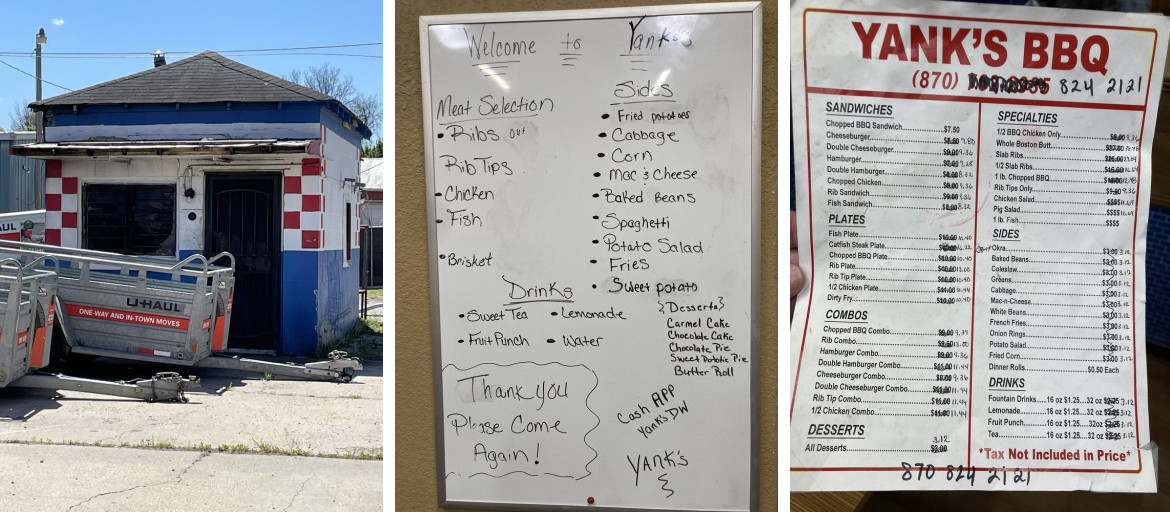 UL
U-HAUL
ONE-WAY AND IN-TOWN MOVES
Welcome to Yank's
Meat Selection
• Ribs out
Rib Tips
• Chicken
• Fish
• Brisket
Sides
• Fried potatoes
• Cabbage
• Corn
• Mac & Cheese
• Baked Beans
• Spaghetti
• Potato Salad
• Fries
• Sweet potato
Drinks
• Sweet Tea • Lemonade
• Fruit Punch • Water
{Desserts}
Carmel Cake
Chocolate Cake
Chocolate Pie
Sweet Potatoe Pie
Butter Roll
Thank you
Please Come
Again!
Cash APP
Yank's DW
YANK'S
YANK'S BBQ
(870) 824 2121
SANDWICHES
Chopped BBQ Sandwich $7.50
Cheeseburger 7.80
Double Cheeseburger 9.36
Hamburger 7.28
Double Hamburger 8.32
Chopped Chicken 9.36
Rib Sandwich 9.36
Fish Sandwich 8.32
PLATES
Fish Plate 10.40
Catfish Steak Plate
Chopped BBQ Plate 10.40
Rib Plate
Rib Tip Plate 10.40
1/2 Chicken Plate 11.44
Dirty Fry 10.40
COMBOS
Chopped BBQ Combo
Rib Combo
Hamburger Combo 9.36
Double Hamburger Combo 11.44
Cheeseburger Combo 9.36
Double Cheeseburger Combo 11.44
Rib Tip Combo 11.44
1/2 Chicken Combo 11.44
DESSERTS
3.12
All Desserts
SPECIALTIES
1/2 BBQ Chicken Only 9.36
Whole Boston Butt
Slab Ribs
1/2 Slab Ribs
1 lb. Chopped BBQ
Rib Tips Only 9.36
Chicken Salad
Pig Salad
1 lb. Fish $$$$
SIDES
Okra $3.00 3.12
Baked Beans $3.00 3.12
Coleslaw $3.00 3.12
Greens $3.00 3.12
Cabbage $3.00 3.12
Mac-n-Cheese $3.00 3.12
White Beans $3.00 3.12
French Fries $3.00 3.12
Onion Rings $3.00 3.12
Potato Salad $3.00 3.12
Fried Corn $3.00 3.12
Dinner Rolls $0.50 Each
DRINKS
Fountain Drinks 16 oz $1.25 32 oz $2.25 3.12
Lemonade 16 oz $1.25 32 oz $2.25 3.12
Fruit Punch 16 oz $1.25 32oz $2.25 3.12
Tea 16 oz $1.25 32 oz $2.25 3.12
*Tax Not Included in Price*
870 824 2121